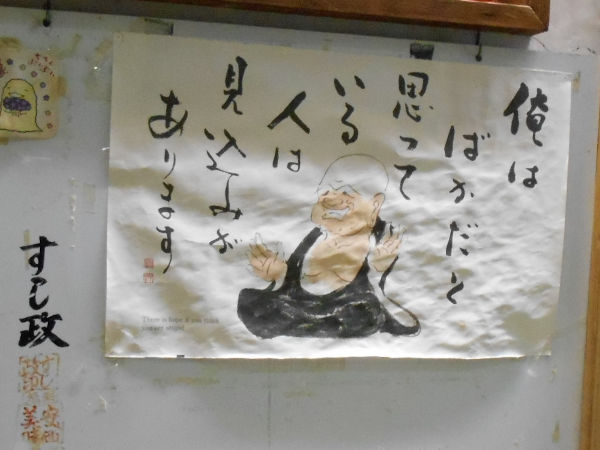 俺は
ばかだと
思って
いる
人は
見込みが
あります
There is hope if you think
you are stupid
すし政